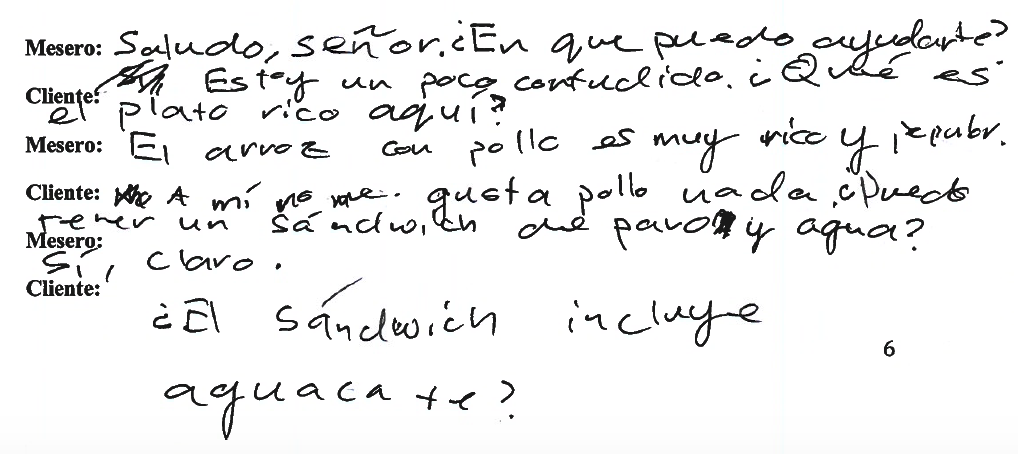 Mesero: Saludo, señor. ¿En que puedo ayudarte?
Cliente: Estoy un poco confudido. ¿Qué es
el plato rico aquí?
Mesero: El arroz con pollo es muy rico y
Cliente: A mí no me gusta pollo nada. ¿Puedo
tener un sándwich de pavo y agua?
Mesero:
Sí, claro.
Cliente:
¿El sándwich incluye
6
aguacate?